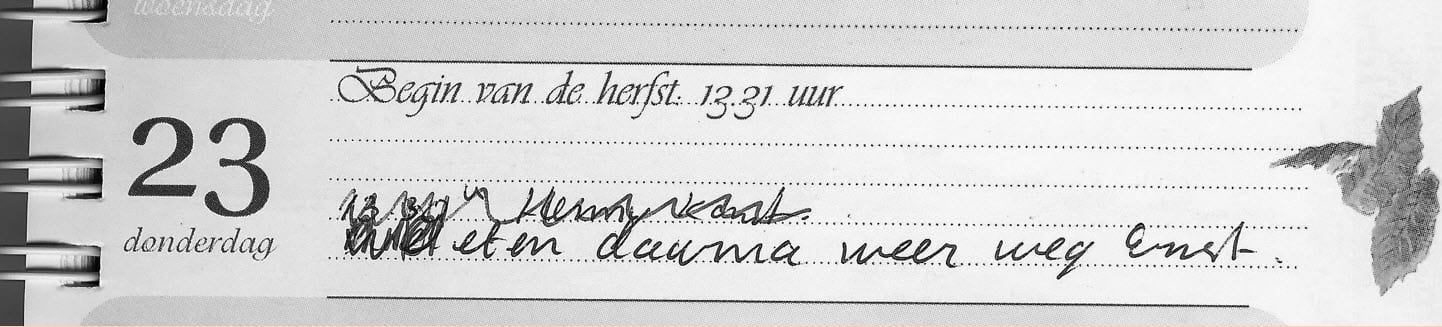 woensdag
Begin van de herfst. 13.31 uur
23
donderdag
eten daarna weer weg Ernst.